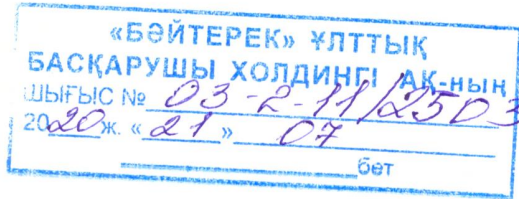 «БӘЙТЕРЕК» ҰЛТТЫҚ
БАСҚАРУШЫ ХОЛДИНГІ АҚ-НЫҢ
ШЫҒЫС № 03-2-11/2503
2020ж. «21» 07
бет